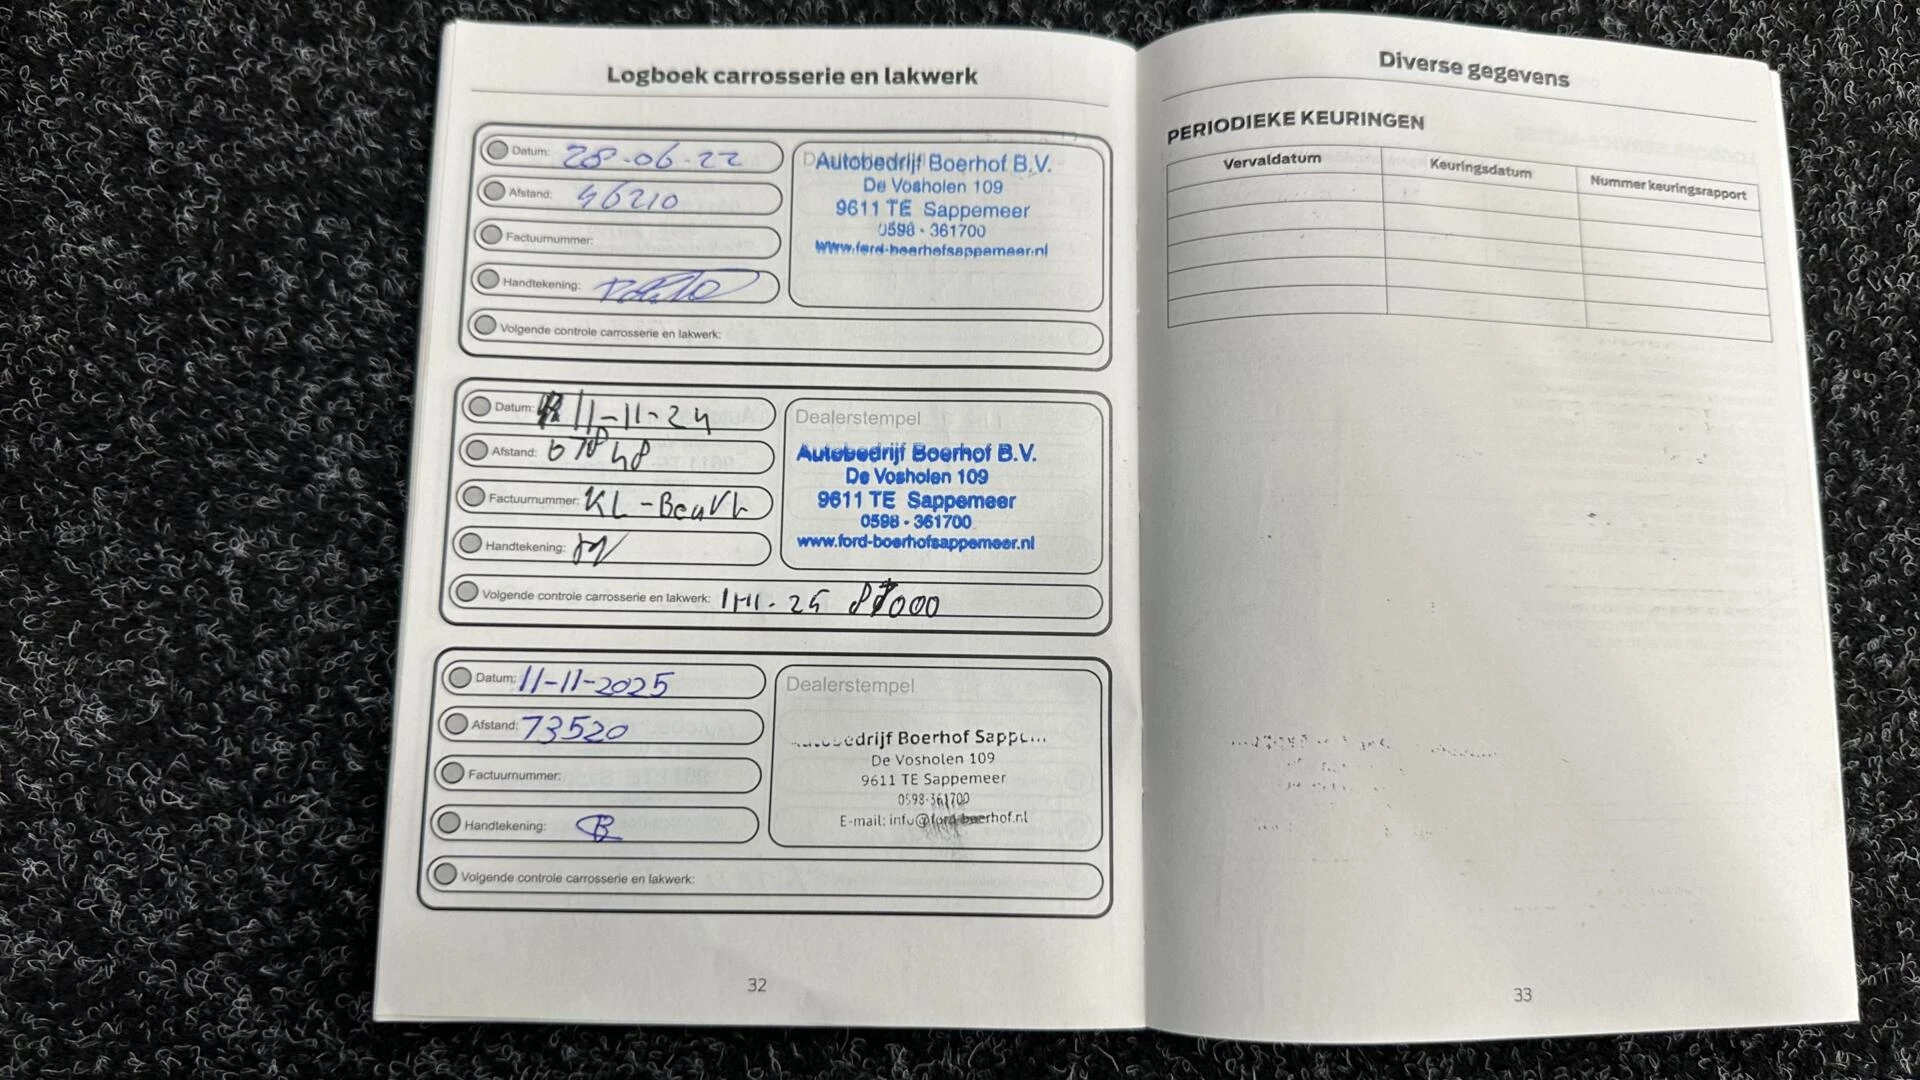 Logboek carrosserie en lakwerk
Datum: 28-06-22
Afstand: 46210
Factuurnummer:
Handtekening:
Volgende controle carrosserie en lakwerk:
Autobedrijf Boerhof B.V.
De Vosholen 109
9611 TE Sappemeer
0598 - 361700
www.ford-boerhofsappemeer.nl
Datum: 11-11-24
Afstand:
Factuurnummer: KL-Beurt
Handtekening:
Volgende controle carrosserie en lakwerk: 11-11-25
Dealerstempel
Autobedrijf Boerhof B.V.
De Vosholen 109
9611 TE Sappemeer
0598 - 361700
www.ford-boerhofsappemeer.nl
Datum: 11-11-2025
Afstand: 73520
Factuurnummer:
Handtekening:
Volgende controle carrosserie en lakwerk:
Dealerstempel
Boerhof
De Vosholen 109
9611 TE Sappemeer
0598-361700
E-mail: info@ford-boerhof.nl
32
Diverse gegevens
PERIODIEKE KEURINGEN
Vervaldatum Keuringsdatum Nummer keuringsrapport
33